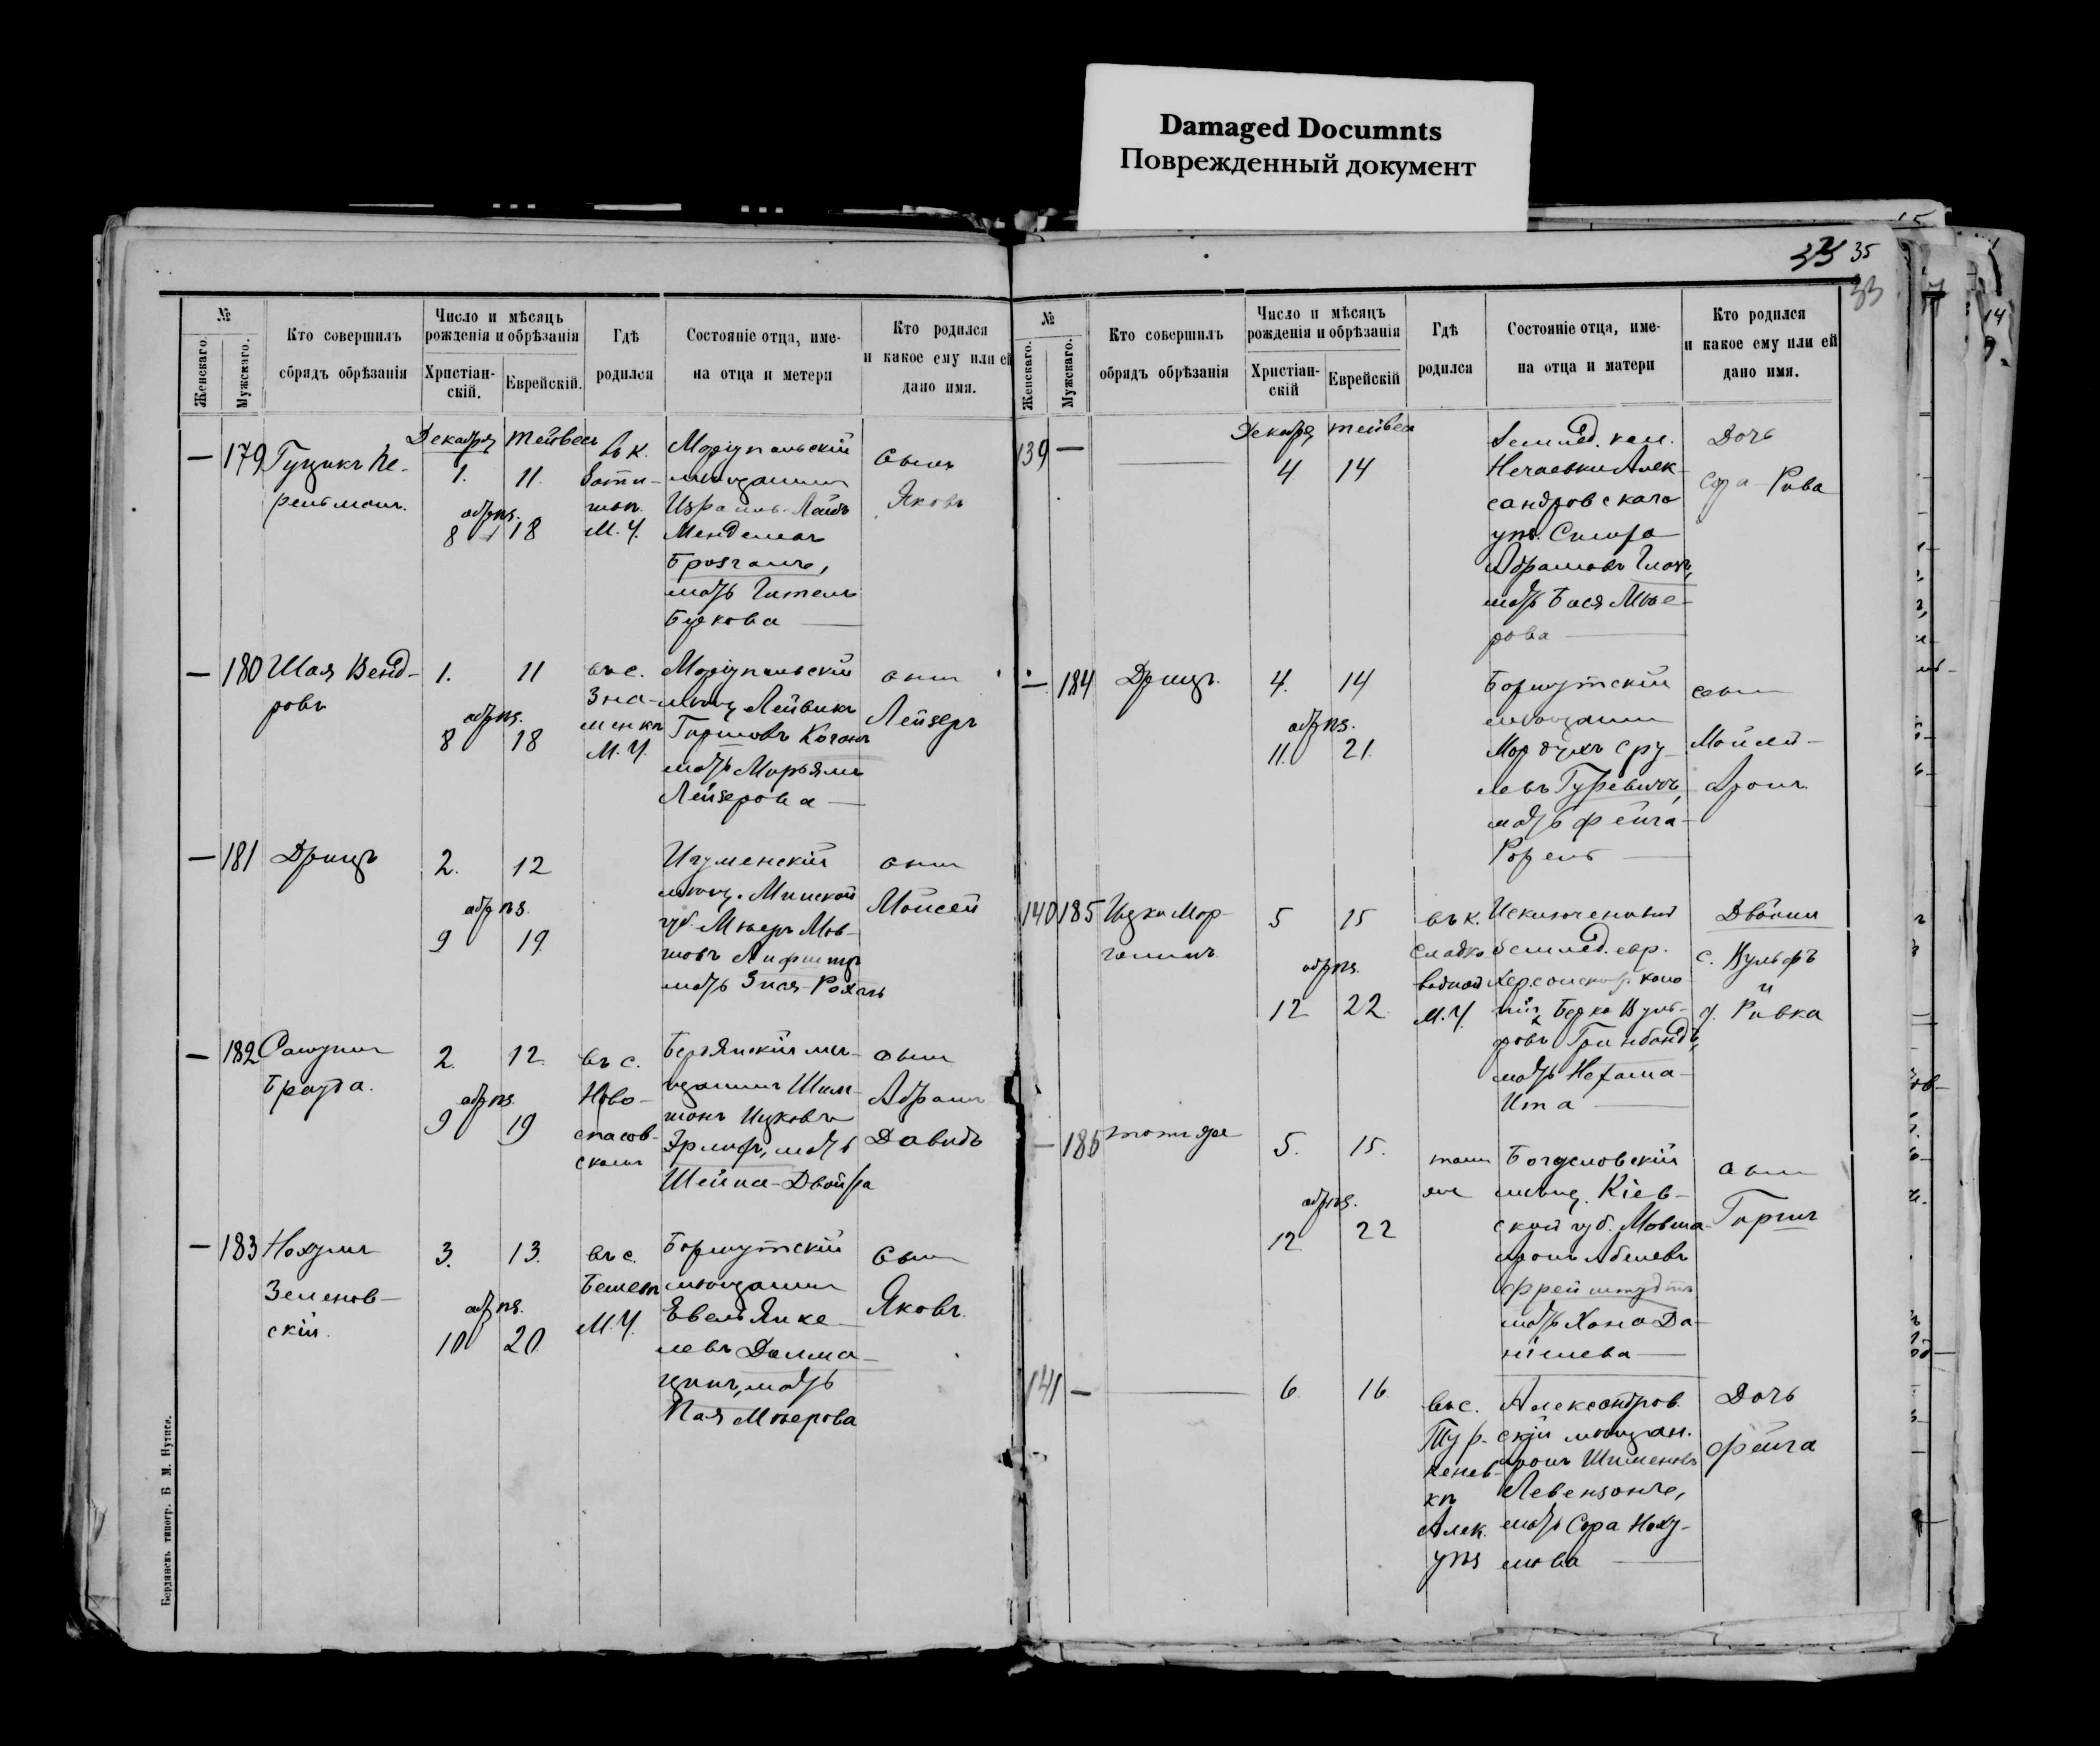 Damaged Documnts
Поврежденный документ
33 35
33
№
Женскаго.
Мужскаго.
Кто совершилъ
обрядъ обрѣзанія
Число и мѣсяцъ
рожденія и обрѣзанія
Христіан-
скій.
Еврейскій.
Гдѣ
родился
Состояніе отца, име-
на отца и метери
Кто родился
и какое ему или ей
дано имя.
Декабря Тейвесъ
— 179 Гуцикъ Пе-
рельманъ.
1. 11.
обрѣз.
8 18
въ к.
М. У.
Маріупольскій
мѣщанинъ
Израиль-Лейбъ
Менделевъ
Брозганъ,
мать Гитель
Беркова —
сынъ
Яковъ
— 180 Шая Венд-
ровъ
1. 11
обрѣз.
8 18
въ с.
Зна-
менкѣ
М. У.
Маріупольскій
мѣщ. Лейвикъ
Гиршовъ Коганъ
мать Марьямъ
Лейзерова —
сынъ
Лейзеръ
— 181 Дрицъ
2. 12
обрѣз.
9 19.
Игуменскій
мѣщ. Минской
губ. Мееръ Мов-
шовъ Лифшицъ
мать Зися-Рохль
сынъ
Моисей
— 182 Самуилъ
Брауда.
2. 12.
обрѣз.
9 19
въ с.
Ново-
спасов-
скомъ
Бердянскій мѣ-
щанинъ Шим-
шонъ Ицковъ
Эрлихъ, мать
Шейна-Двойра
сынъ
Абрамъ
Давидъ
— 183 Нохумъ
Зеленов-
скій.
3. 13.
обрѣз.
10 20
въ с.
Бешев
М. У.
мѣщанинъ
Евель Янке-
левъ Далма-
цинъ, мать
Пая Меерова
сынъ
Яковъ.
Бердянскъ типогр. Б М. Нутиса.
№
Женскаго.
Мужскаго.
Кто совершилъ
обрядъ обрѣзанія
Число и мѣсяцъ
рожденія и обрѣзанія
Христіан-
скій
Еврейскій
Гдѣ
родился
Состояніе отца, име-
на отца и матери
Кто родился
и какое ему или ей
дано имя.
Декабря Тейвеса
139 —
4. 14
Землед. кол.
Нечаевки Алек-
сандровскаго
уѣз. Симха
Абрамовъ
мать Бася Мее-
рова —
Дочь
Сора-Рива
— 184 Дрицъ.
4. 14
обрѣз.
11. 21.
мѣщанинъ
Мордухъ Сру-
левъ Гуревичъ,
мать Фейга-
Рохель —
сынъ
Моисей-
Аронъ.
140 185 Ицко Мор-
5 15
обрѣз.
12 22.
въ к.
Сладко
водной
М. У.
Исключенный
землед. евр.
Херсонской г. коло-
ніи Берко Вуль-
фовъ Гринбандъ,
мать Нехама-
Ита —
Двойни
с. Вульфъ
и
д. Ривка
— 186 тотъ же
5. 15.
обрѣз.
12 22
тамъ
же
Богуславскій
мѣщ. Кіев-
ской губ. Мовша-
Аронъ Абелевъ
Фрейштудтъ
мать Хана Да-
ніилева —
сынъ
Гиршъ
141 —
6. 16.
въ с.
Тур-
кенев-
кѣ
Алек.
уѣз
Александров.
скій мѣщан.
Аронъ Шименовъ
Левензонъ,
мать Сора Наху-
мова —
Дочь
Фейга